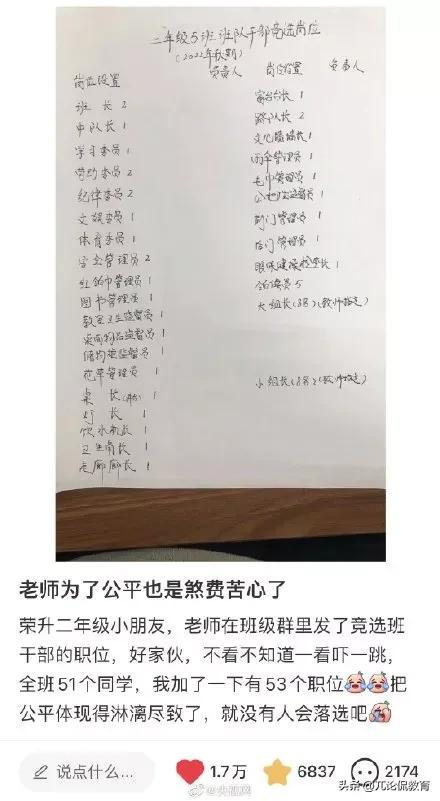 二年级5班班队干部竞选岗位
(2022年秋期)
岗位设置 负责人 岗位设置 负责人
班 长 2
中队长 1
学习委员 1
劳动委员 2
纪律委员 2
文娱委员 1
体育委员 1
管理员 2
红领巾管理员 1
图书管理员 1
教室卫生监督员 1
桌面物品监督员 1
监督员 1
花草管理员 1
桌 长 1
灯 长 1
饮水机长 1
卫生角长 1
走廊廊长 1
窗台台长 1
路队长 2
文化墙墙长 1
雨伞管理员 1
毛巾管理员 1
公地监督员 1
前门管理员 1
后门管理员 1
眼保健操检查长 1
领读员 5
大组长(8名)(教师指定)
小组长(8名)(教师指定)
老师为了公平也是煞费苦心了
荣升二年级小朋友，老师在班级群里发了竞选班
干部的职位，好家伙，不看不知道一看吓一跳，
全班51个同学，我加了一下有53个职位😂😂把
公平体现得淋漓尽致了，就没有人会落选吧
说点什么... 1.7万 6837 2174
@央视网
头条 @兀论侃教育